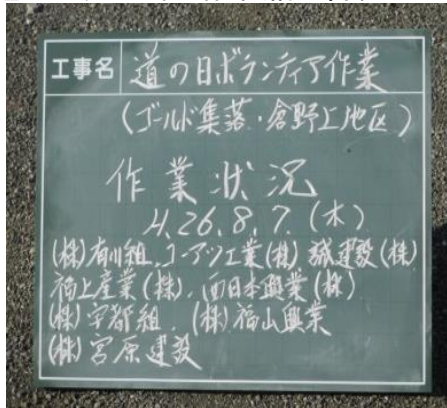 工事名 道の日ボランティア作業
(ゴールド集落・倉野上地区)
作業状況
H.26.8.7.(木)
(株)有川組、コーアツ工業(株) 誠建設(株)
福上産業(株)、西日本興業(株)
(株)宇都組、(株)福山興業
(株)宮原建設